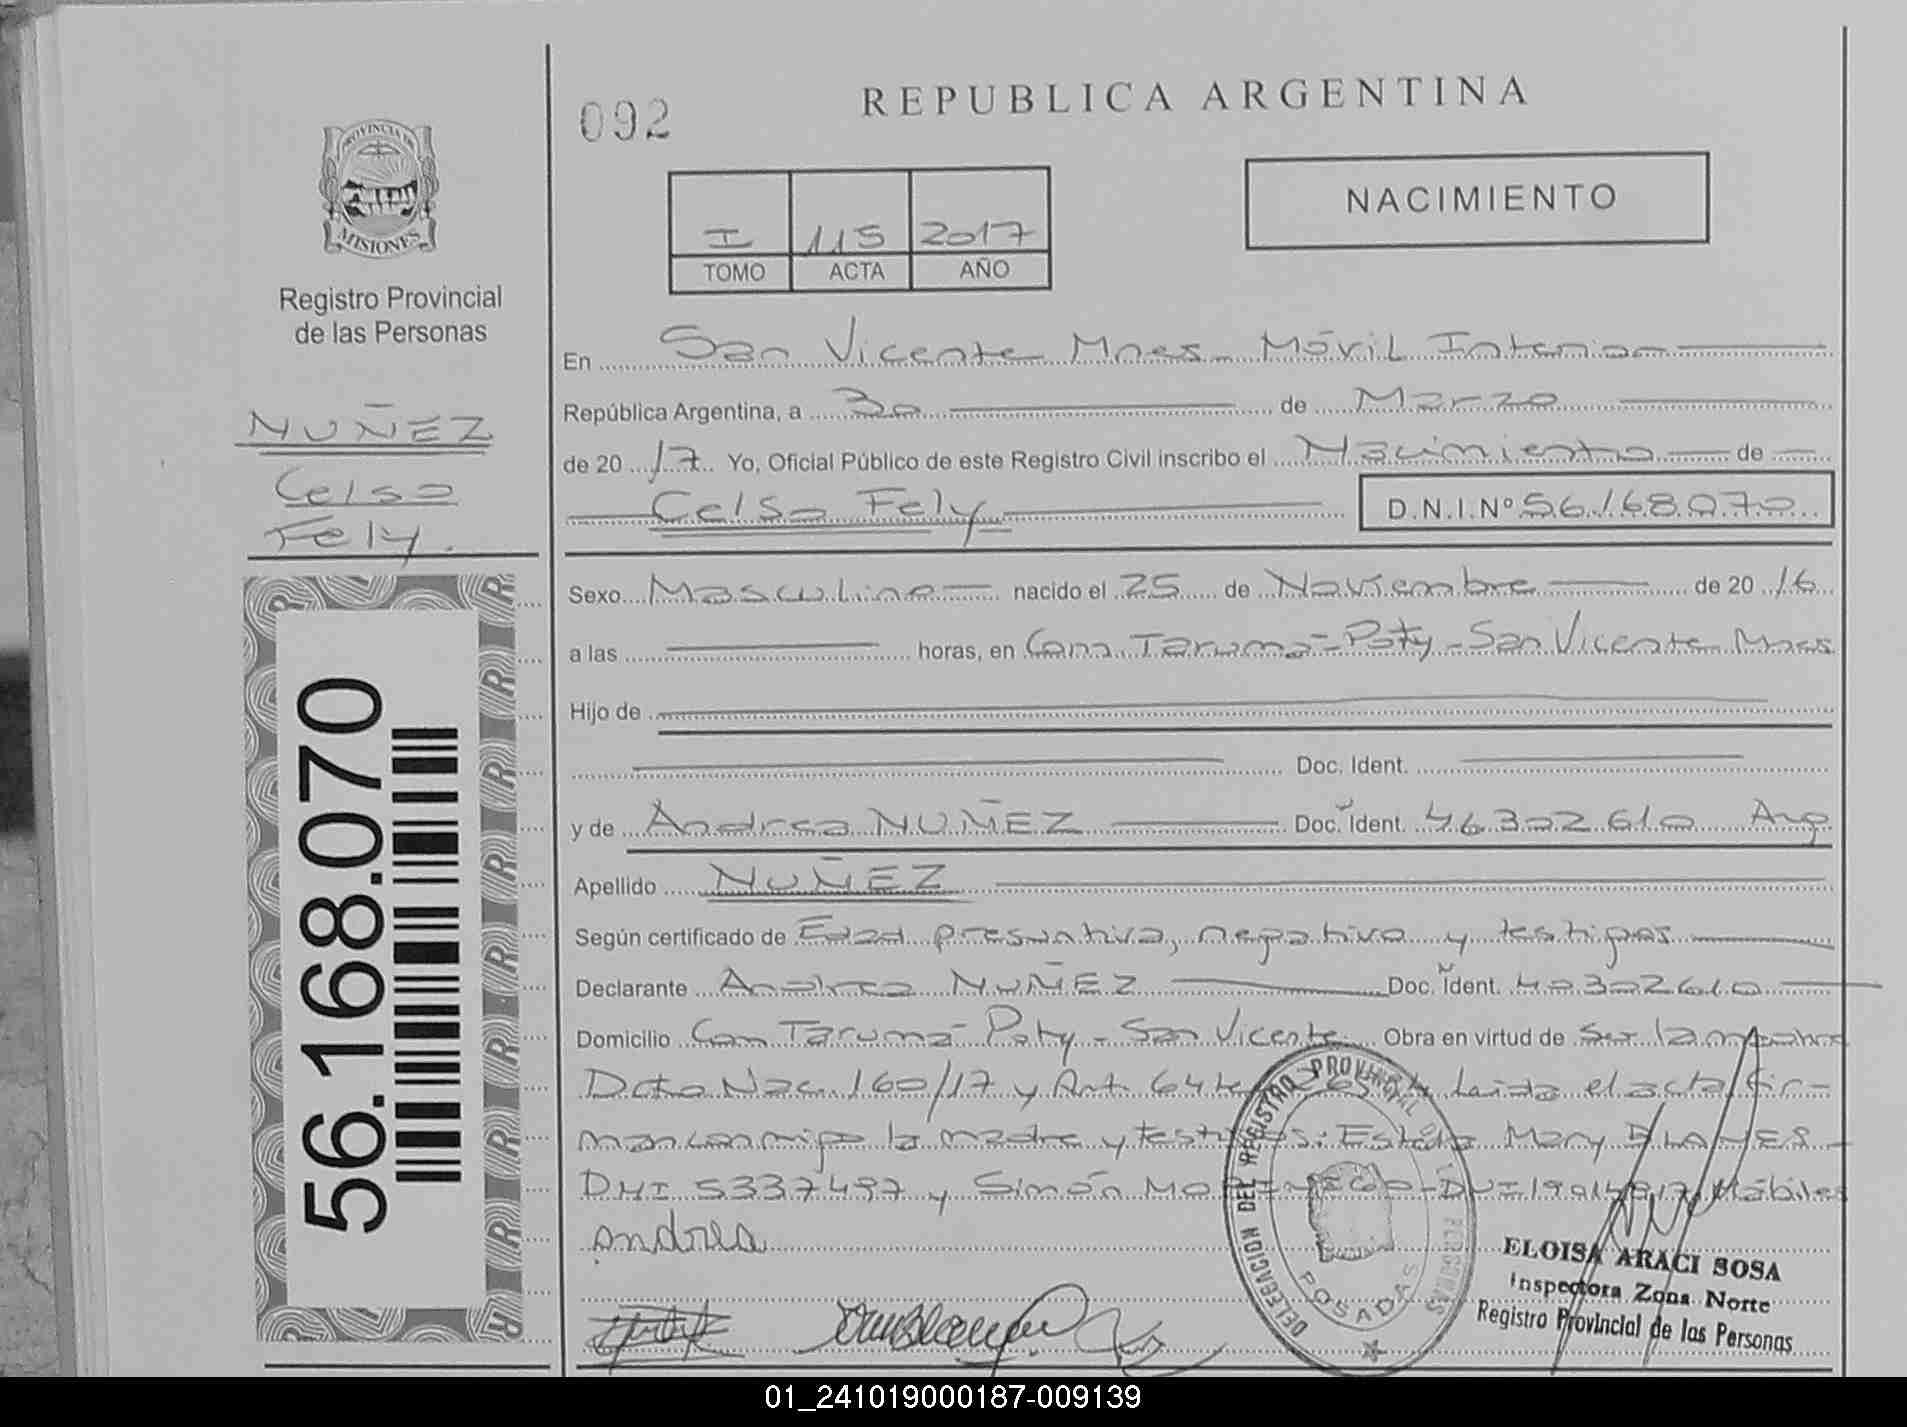 092
REPUBLICA ARGENTINA
NACIMIENTO
I 115 2017
TOMO ACTA AÑO
PROVINCIA DE
MISIONES
Registro Provincial
de las Personas
NUÑEZ
Celso
Fely.
56.168.070
En San Vicente Mnes Móvil Interior
República Argentina, a 30 de Marzo
de 2017 Yo, Oficial Público de este Registro Civil inscribo el Nacimiento de
Celso Fely D.N.I.Nº 56.168.070
Sexo Masculino nacido el 25 de Noviembre de 2016
a las horas, en Com Taruma-Poty-San Vicente Mnes
Hijo de
Doc. Ident.
y de Andrea NUÑEZ Doc. Ident. 46302610 Arg
Apellido NUÑEZ
Según certificado de Edad presuntiva, negativa y testigos
Declarante Andrea NUÑEZ Doc. Ident.
Domicilio Com Taruma-Poty-San Vicente Obra en virtud de ser la madre
Dcto Nac. 160/17 y Art. 64 Leida el acta fir-
man conmigo la madre y testigos: Mary
DNI 5337497 y Simón Hábiles
andrea
DELEGACION DEL REGISTRO PROVINCIAL DE LAS PERSONAS
POSADAS
ELOISA ARACI SOSA
Inspectora Zona Norte
Registro Provincial de las Personas
01_241019000187-009139